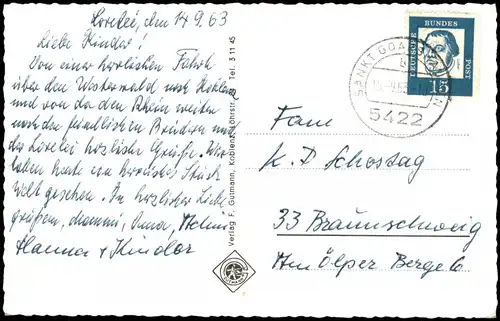 Lorelei, den 14.9.63
Liebe Kinder!
Von einer herrlichen Fahrt
über den Westerwald nach Koblenz
und von da den Rhein weiter
nach den feindlichen Brüdern und
der Lorelei herzliche Grüße. Wir
haben heute ein herrliches Stück
Welt gesehen. In herzlicher Liebe
grüßen, Mammi, Oma,
Hanna + Kinder
Verlag F. Gutmann, Koblenz, Löhrstr. Tel. 3 11 45
DEUTSCHE BUNDES POST
15
SANKT GOARSHAUSEN
5422
Fam
K. D Schostag
33 Braunschweig
Am Ölper Berge 6